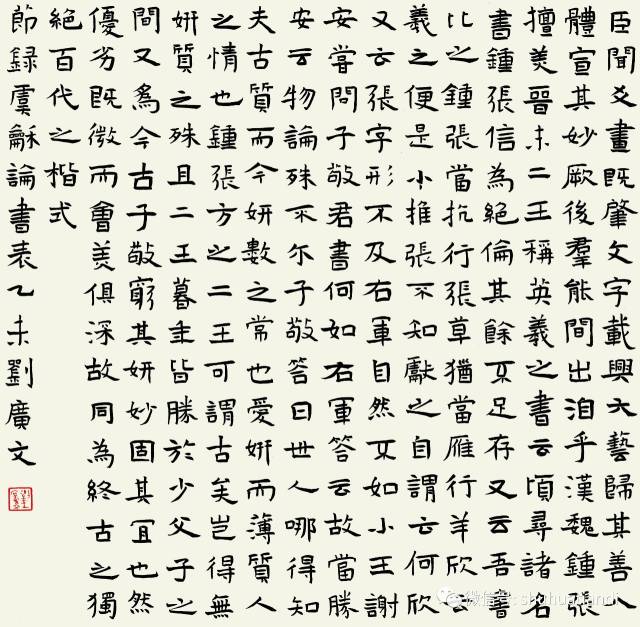 臣聞爻畫既肇文字載興六藝歸其善八
體宣其妙厥後羣能間出洎乎漢魏鍾張
擅美晉末二王稱英羲之書云頃尋諸名
書鍾張信為絕倫其餘不足存又云吾書
比之鍾張當抗行張草猶當雁行羊欣云
羲之便是小推張不知獻之自謂云何欣
又云張字形不及右軍自然不如小王謝
安嘗問子敬君書何如右軍答云故當勝
安云物論殊不尔子敬答曰世人哪得知
夫古質而今妍數之常也愛妍而薄質人
之情也鍾張方之二王可謂古矣豈得無
妍質之殊且二王暮年皆勝於少父子之
間又為今古子敬窮其妍妙固其宜也然
優劣既微而會美俱深故同為終古之獨
絕百代之楷式
節録虞龢論書表乙未劉廣文
微信号: